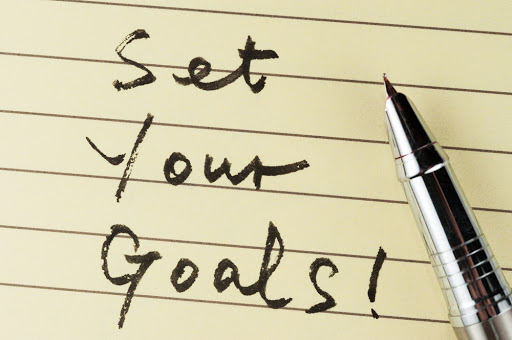 Set
Your
Goals!